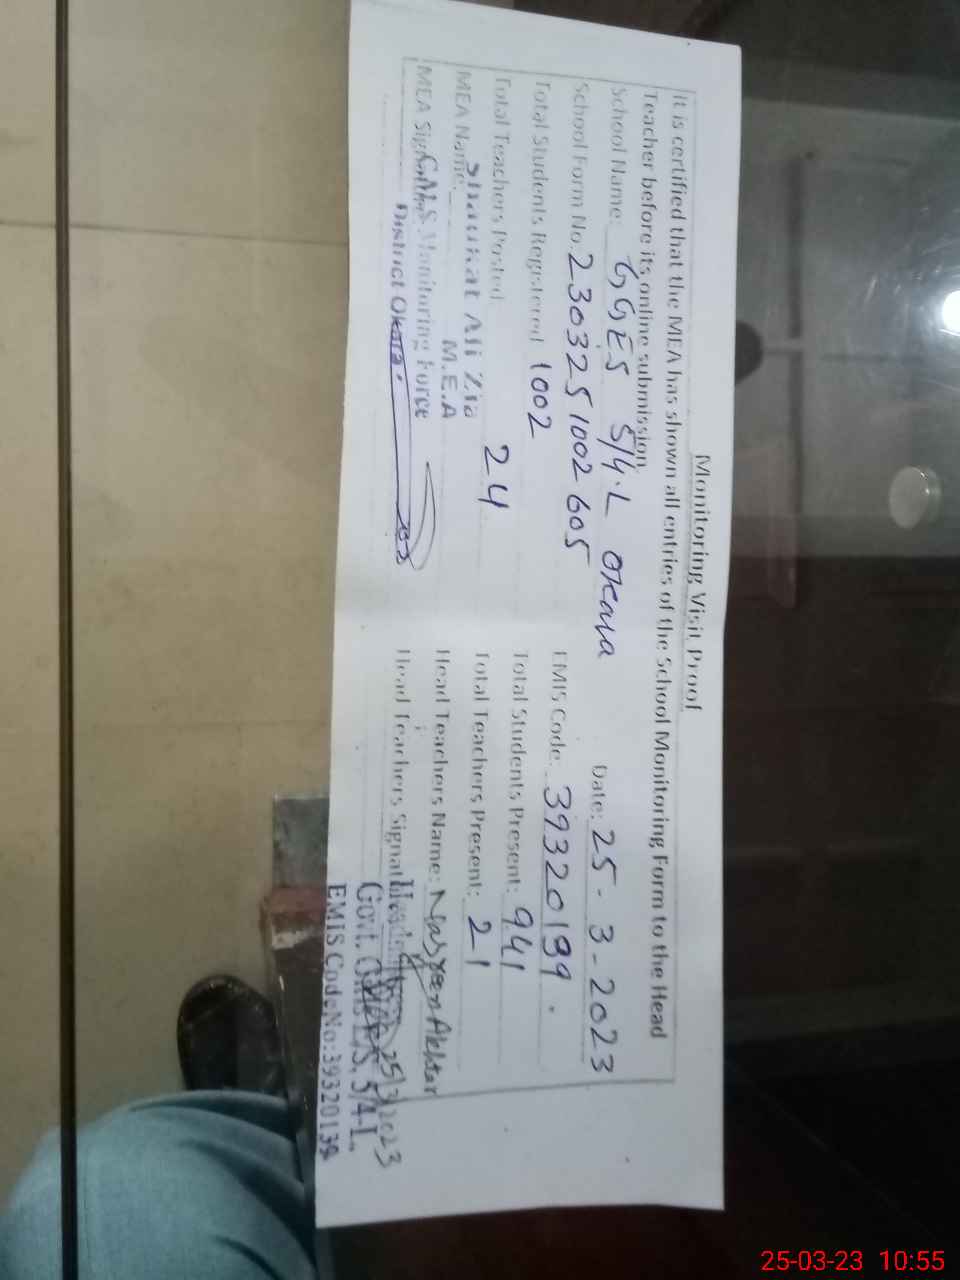 Monitoring Visit Proof
It is certified that the MEA has shown all entries of the School Monitoring Form to the Head
Teacher before its online submission.
Date: 25-3-2023
School Name: GGES 5/4.L Okara
School Form No. 2303251002605
EMIS Code: 39320139.
Total Students Registered 1002
Total Students Present: 941
Total Teachers Posted 24
Total Teachers Present: 21
MEA Name: Shaukat Ali Zia
M.E.A
Head Teachers Name: Nasreen Akhtar
MEA Signature Monitoring Force
District Okara.
Head Teachers Signature
25/3/2023
Govt. Girls E/S, 5/4-L.
EMIS Code No: 39320139
25-03-23 10:55